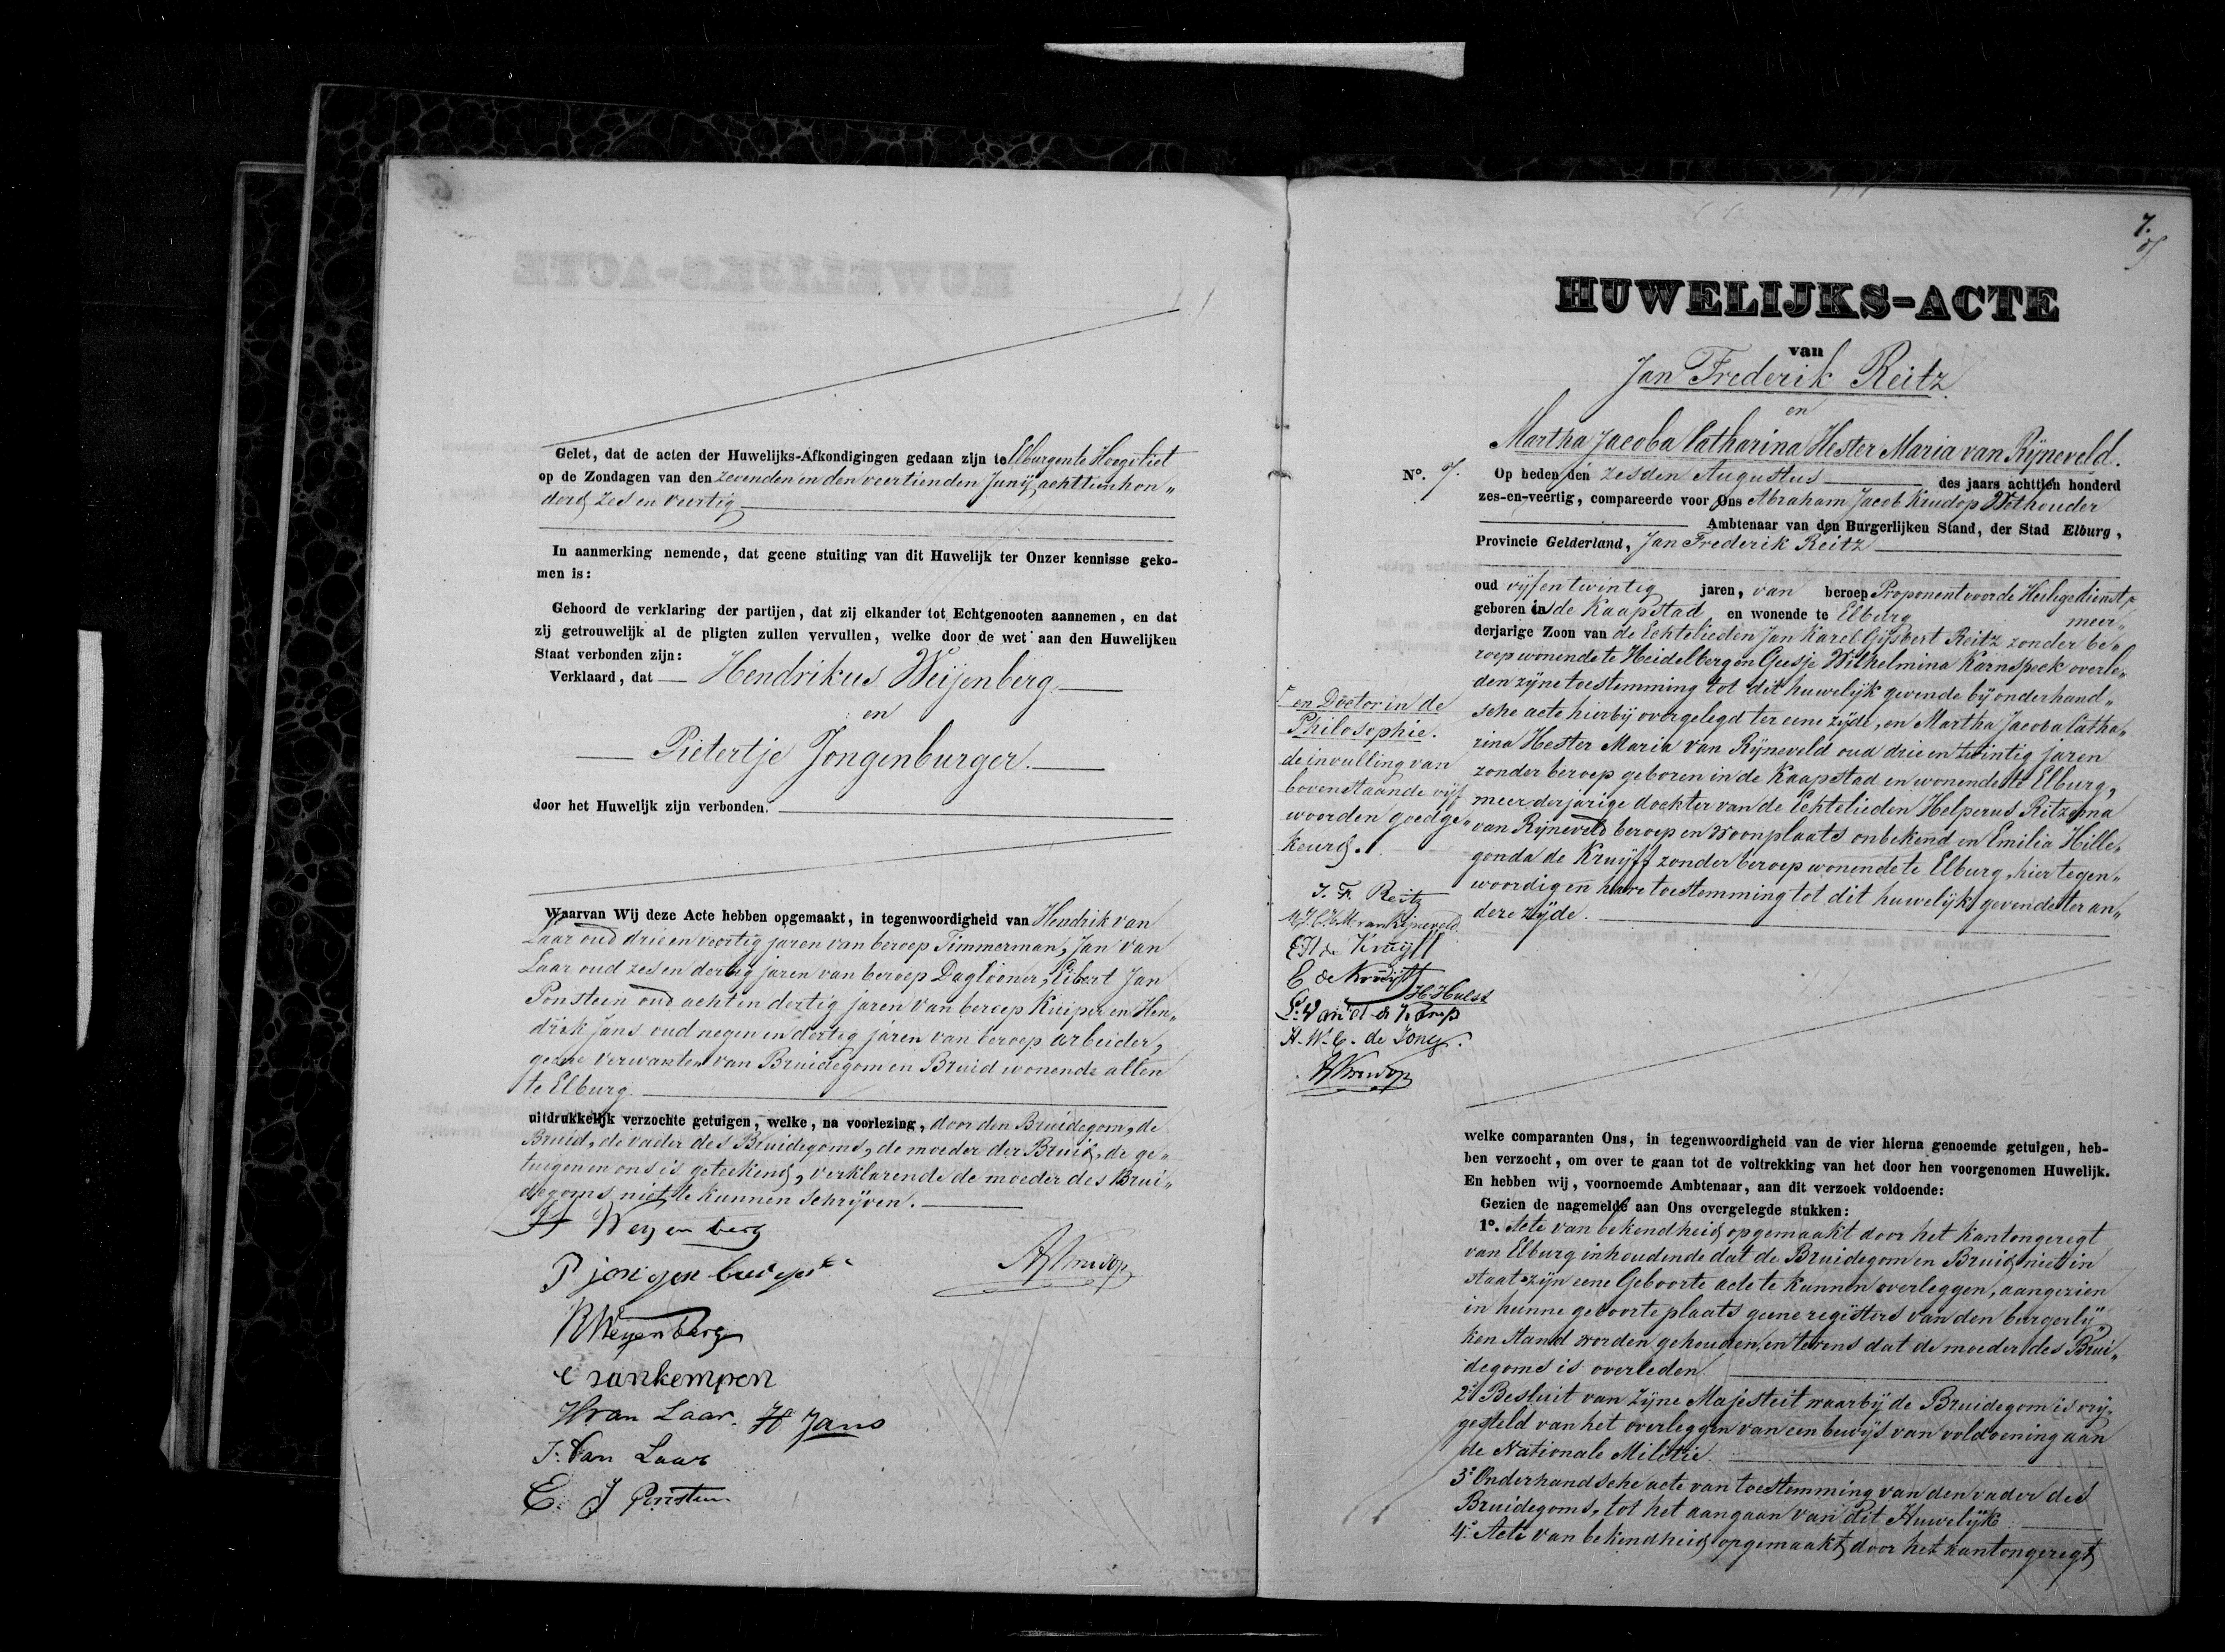 Gelet, dat de acten der Huwelijks-Afkondigingen gedaan zijn te Elburg en te Hoogvliet
op de Zondagen van den zevenden en den veertienden Junij achttienhon„
derd zes en veertig
In aanmerking nemende, dat geene stuiting van dit Huwelijk ter Onzer kennisse geko-
men is:
Gehoord de verklaring der partijen, dat zij elkander tot Echtgenooten aannemen, en dat
zij getrouwelijk al de pligten zullen vervullen, welke door de wet aan den Huwelijken
Staat verbonden zijn:
Verklaard, dat Hendrikus Weijenberg
en
Pietertje Jongenburger.
door het Huwelijk zijn verbonden.
Waarvan Wij deze Acte hebben opgemaakt, in tegenwoordigheid van Hendrik van
Laar oud drie en veertig jaren van beroep Timmerman, Jan van
Laar oud zes en dertig jaren van beroep Daglooner, Eibert Jan
Ponstein oud acht en dertig jaren van beroep Kuiper en Hen„
drik Jans oud negen en dertig jaren van beroep arbeider,
geene verwanten van Bruidegom en Bruid wonende allen
te Elburg.
uitdrukkelijk verzochte getuigen, welke, na voorlezing, door den Bruidegom, de
Bruid, de vader des Bruidegoms, de moeder der Bruid, de ge„
tuigen en ons is geteekend, verklarende de moeder des Brui„
degoms niet te kunnen schrijven.
H Weyenberg
P jongenburger
Weyenberg
C vankempen
H van Laar. H Jans
J. Van Laar
E. J Ponstein
AJKrudop
7.
HUWELIJKS-ACTE
van
Jan Frederik Reitz
en
Martha Jacoba Catharina Hester Maria van Rijneveld.
No. 7. Op heden den zesden Augustus des jaars achttien honderd
zes-en-veertig, compareerde voor Ons Abraham Jacob Krudop Wethouder
Ambtenaar van den Burgerlijken Stand, der Stad Elburg,
Provincie Gelderland, Jan Frederik Reitz
oud vijf en twintig jaren, van beroep Proponent voor de Heilige dienst
geboren in de Kaapstad en wonende te Elburg meer„
derjarige Zoon van de Echtelieden Jan Karel Gijsbert Reitz zonder be„
roep wonende te Heidelberg en Geesje Wilhelmina Karnspek overle„
den zijne toestemming tot dit huwelijk gevende bij onderhand„
sche acte hierbij overgelegd ter eene zijde, en Martha Jacoba Catha„
rina Hester Maria van Rijneveld oud drie en twintig jaren
zonder beroep geboren in de Kaapstad en wonende te Elburg,
meerderjarige dochter van de Echtelieden Helperus Ritzema
van Rijneveld beroep en woonplaats onbekend en Emilia Hille„
gonda de Kruijff zonder beroep wonende te Elburg, hier tegen„
woordig en hare toestemming tot dit huwelijk gevende ter an„
dere zijde.
en Doctor in de
Philosophie.
de invulling van
bovenstaande vijf
woorden goedge„
keurd.
J. F. Reitz
M.J.C.H.M. van Rijneveld.
E H de Kruijff
C de Kruijff
H Hulst
H. W. C. de Jong.
AJKrudop
welke comparanten Ons, in tegenwoordigheid van de vier hierna genoemde getuigen, heb-
ben verzocht, om over te gaan tot de voltrekking van het door hen voorgenomen Huwelijk.
En hebben wij, voornoemde Ambtenaar, aan dit verzoek voldoende:
Gezien de nagemelde aan Ons overgelegde stukken:
1o. Acte van bekendheid opgemaakt door het Kantongeregt
van Elburg inhoudende dat de Bruidegom en Bruid niet in
staat zijn eene Geboorte acte te kunnen overleggen, aangezien
in hunne geboorteplaats geene registers van den burgerlij„
ken stand worden gehouden, en tevens dat de moeder des Brui„
degoms is overleden.
2o Besluit van Zijne Majesteit waarbij de Bruidegom is vrij„
gesteld van het overleggen van een bewijs van voldoening aan
de Nationale Militie.
3o Onderhandsche acte van toestemming van den vader des
Bruidegoms, tot het aangaan van dit Huwelijk.
4o Acte van bekendheid opgemaakt door het kantongeregt